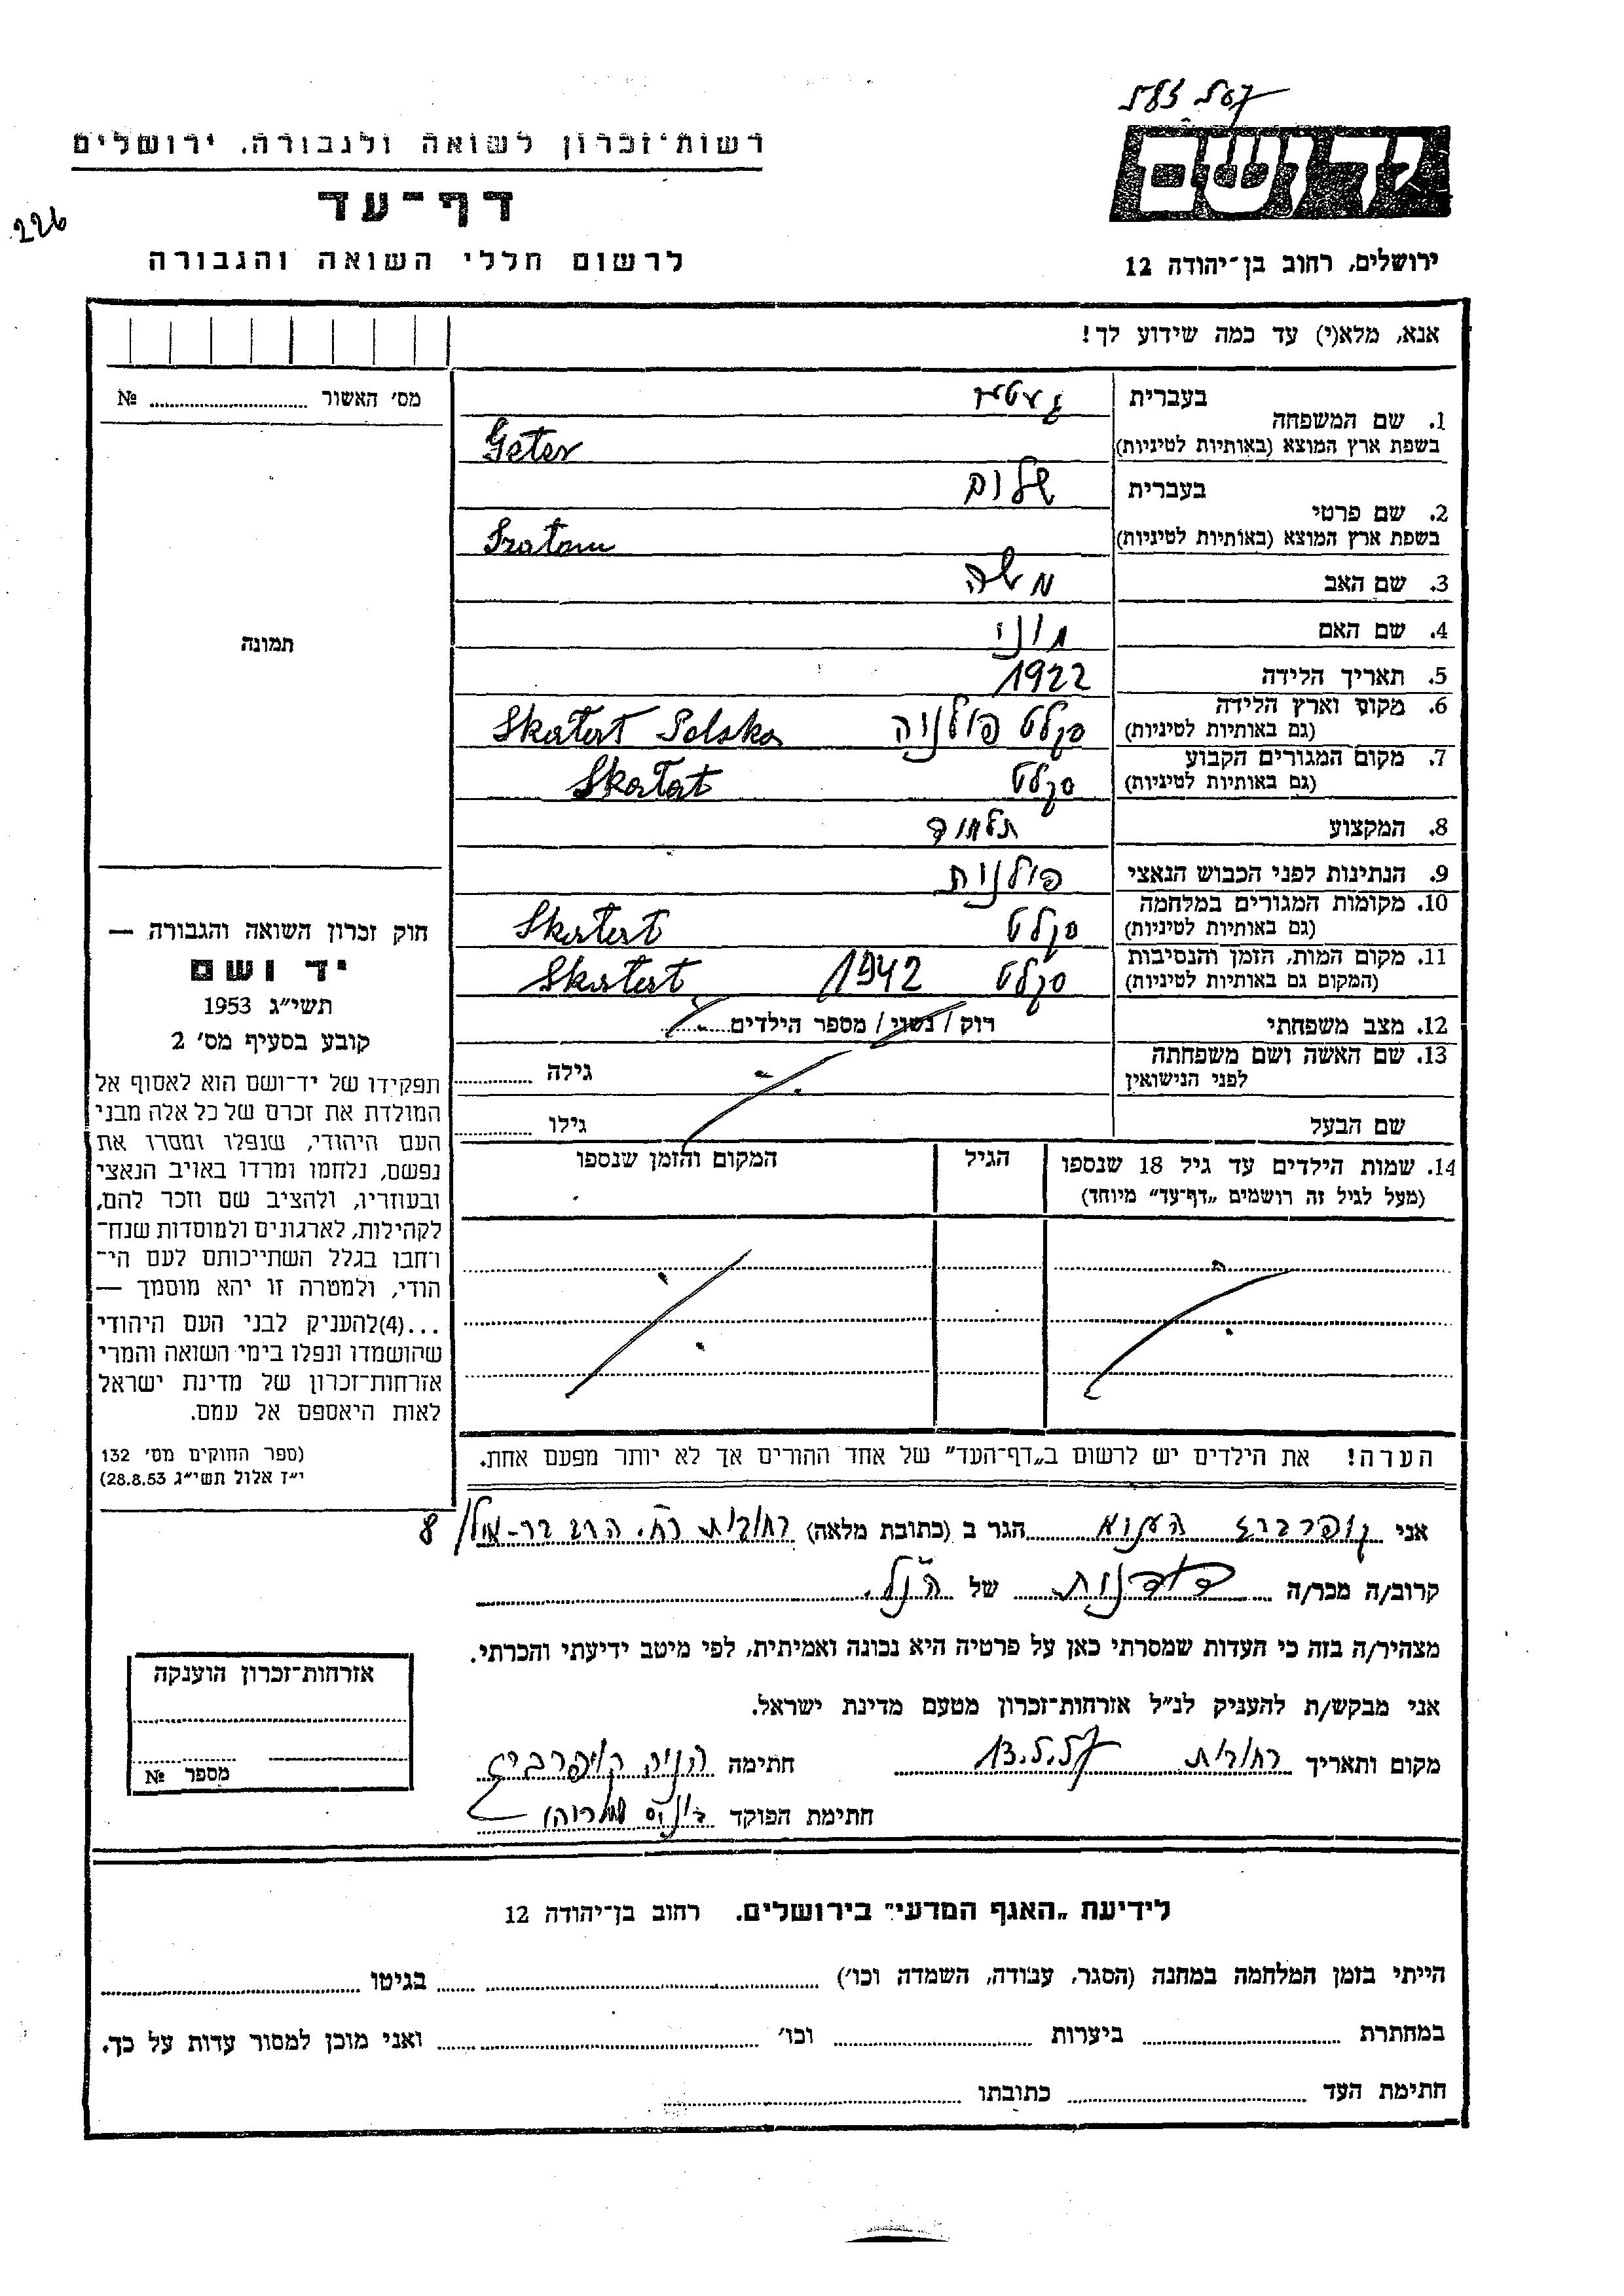 רשות־זכרון לשואה ולגבורה. ירושלים
דף־עד
לרשום חללי השואה והגבורה
226
יד ושם
ירושלים, רחוב בן־יהודה 12
אנא, מלא(י) עד כמה שידוע לך!
מס׳ האשור № 
תמונה
1. שם המשפחה בעברית
בשפת ארץ המוצא (באותיות לטיניות) Geter
2. שם פרטי בעברית שלום
בשפת ארץ המוצא (באותיות לטיניות)
3. שם האב משה
4. שם האם
5. תאריך הלידה 1922
6. מקום וארץ הלידה סקלט פולניה Skałat Polska
(גם באותיות לטיניות)
7. מקום המגורים הקבוע סקלט Skałat
(גם באותיות לטיניות)
8. המקצוע תלמיד
9. הנתינות לפני הכבוש הנאצי פולנית
10. מקומות המגורים במלחמה סקלט Skałat
(גם באותיות לטיניות)
11. מקום המות, הזמן והנסיבות סקלט 1942 Skałat
(המקום גם באותיות לטיניות)
12. מצב משפחתי רוק / נשוי / מספר הילדים
13. שם האשה ושם משפחתה גילה
לפני הנישואין
שם הבעל גילו
14. שמות הילדים עד גיל 18 שנספו הגיל המקום והזמן שנספו
(מעל לגיל זה רושמים „דף־עד״ מיוחד)
הערה! את הילדים יש לרשום ב„דף־העד״ של אחד ההורים אך לא יותר מפעם אחת.
חוק זכרון השואה והגבורה —
יד ושם
תשי״ג 1953
קובע בסעיף מס׳ 2
תפקידו של יד־ושם הוא לאסוף אל
המולדת את זכרם של כל אלה מבני
העם היהודי, שנפלו ומסרו את
נפשם, נלחמו ומרדו באויב הנאצי
ובעוזריו, ולהציב שם וזכר להם,
לקהילות, לארגונים ולמוסדות שנח־
רחבו בגלל השתייכותם לעם הי־
הודי, ולמטרה זו יהא מוסמך —
...(4)להעניק לבני העם היהודי
שהושמדו ונפלו בימי השואה והמרי
אזרחות־זכרון של מדינת ישראל
לאות היאספם אל עמם.
(ספר החוקים מס׳ 132
י״ז אלול תשי״ג 28.8.53)
אני קופרברג הענא הגר ב (כתובת מלאה) רחובות רח׳ הרב בר-אילן 8
קרוב/ה מכר/ה של הנ״ל.
מצהיר/ה בזה כי העדות שמסרתי כאן על פרטיה היא נכונה ואמיתית, לפי מיטב ידיעתי והכרתי.
אני מבקש/ת להעניק לנ״ל אזרחות־זכרון מטעם מדינת ישראל.
מקום ותאריך רחובות 13.5.57 חתימה הניה קופרברג
חתימת הפוקד
אזרחות־זכרון הוענקה
מספר №
לידיעת „האגף המדעי״ בירושלים. רחוב בן־יהודה 12
הייתי בזמן המלחמה במחנה (הסגר, עבודה, השמדה וכו׳) בגיטו
במחתרת ביערות וכו׳ ואני מוכן למסור עדות על כך.
חתימת העד כתובתו